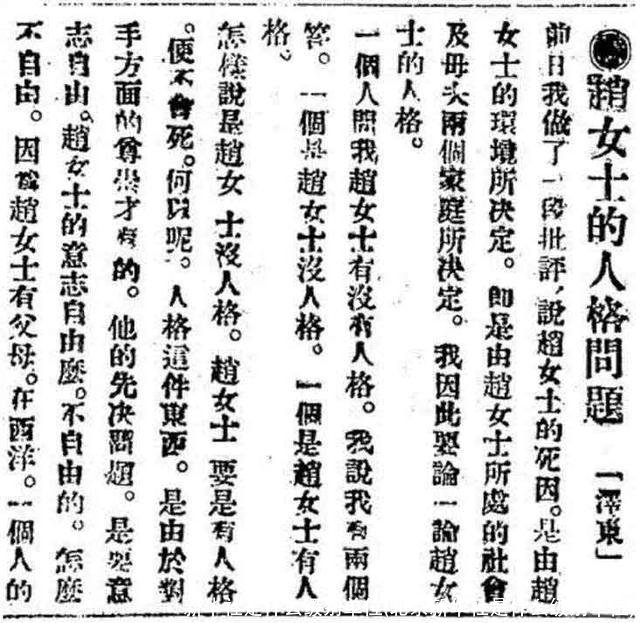 趙女士的人格問題 「澤東」
前日我做了一段批評、說趙女士的死因。是由趙
女士的環境所決定。卽是由趙女士所處的社會
及母夫兩個家庭所決定。我因此要論一論趙女
士的人格。
一個人問我趙女士有沒有人格。我說我有兩個
答。一個是趙女士沒人格。一個是趙女士有人
格。
怎樣說是趙女士沒人格。趙女士要是有人格
。便不會死。何以呢。人格這件東西。是由於對
手方面的尊崇才有的。他的先決問題。是要意
志自由。趙女士的意志自由麼。不自由的。怎麼
不自由。因爲趙女士有父母。在西洋。一個人的